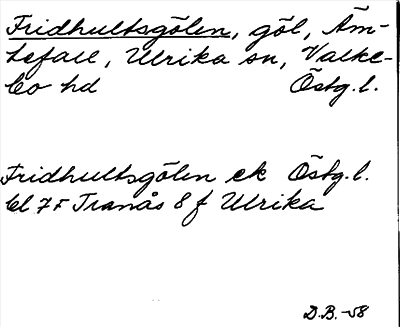 Fridhultsgölen, göl, Äm-
tefall, Ulrika sn, Valke-
bo hd Östg. l.
Fridhultsgölen ek Östg. l.
bl 7F Tranås 8 f Ulrika
D.B. -58